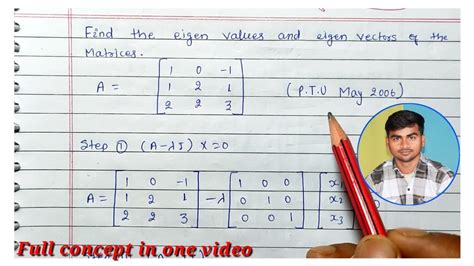 Find the eigen values and eigen vectors of the
Matrices.
A = [ 1 0 -1
1 2 1
2 2 3 ]
(P.T.U May 2006)
Step ① (A-λI) X=0
A = [ 1 0 -1
1 2 1
2 2 3 ] -λ [ 1 0 0
0 1 0
0 0 1 ] [ x1
x2
x3
Full concept in one video